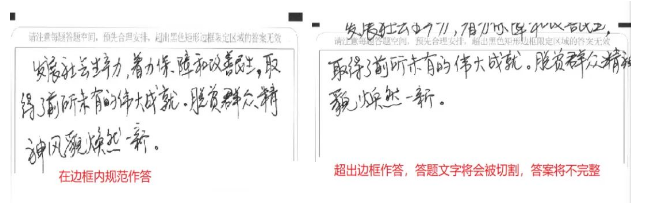 请注意每题答题空间，预先合理安排，超出黑色矩形边框限定区域的答案无效
发展社会生产力，着力保障和改善民生，取
得了前所未有的伟大成就。脱贫群众精
神风貌焕然一新。
在边框内规范作答
请注意每题答题空间，预先合理安排，超出黑色矩形边框限定区域的答案无效
取得了前所未有的伟大成就。脱贫群众精
貌焕然一新。
超出边框作答，答题文字将会被切割，答案将不完整